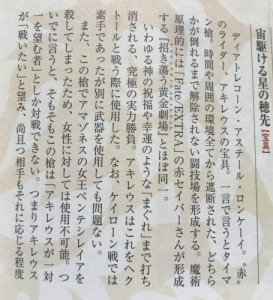 宙駆ける星の穂先【宝具】
ディアトレコーン・アステール・ロンケーイ。“赤”
のライダー、アキレウスの宝具。一言で言うとタイマ
ン槍。時間や周囲の環境全てから遮断された、どちら
かが倒れるまで解除されない闘技場を形成する。魔術
原理的には『Fate/EXTRA』の赤セイバーさんが形成
する「招き蕩う黄金劇場」とほぼ同一。
いわゆる神の祝福や幸運のような「まぐれ」まで打ち
消される、究極の実力勝負。アキレウスはこれをヘク
トールと戦う際に使用した。なお、ケイローン戦では
素手であったが別に武器を使用しても問題ない。
また、この槍でアマゾネスの女王ペンテシレイアを
殺してしまったため、女性に対しては使用不可能。つ
いでに言うと、そもそもこの槍は「アキレウスが一対
一を望む者」としか対戦できない。つまりアキレウス
が「戦いたい」と望み、尚且つ相手もそれに応じる程度